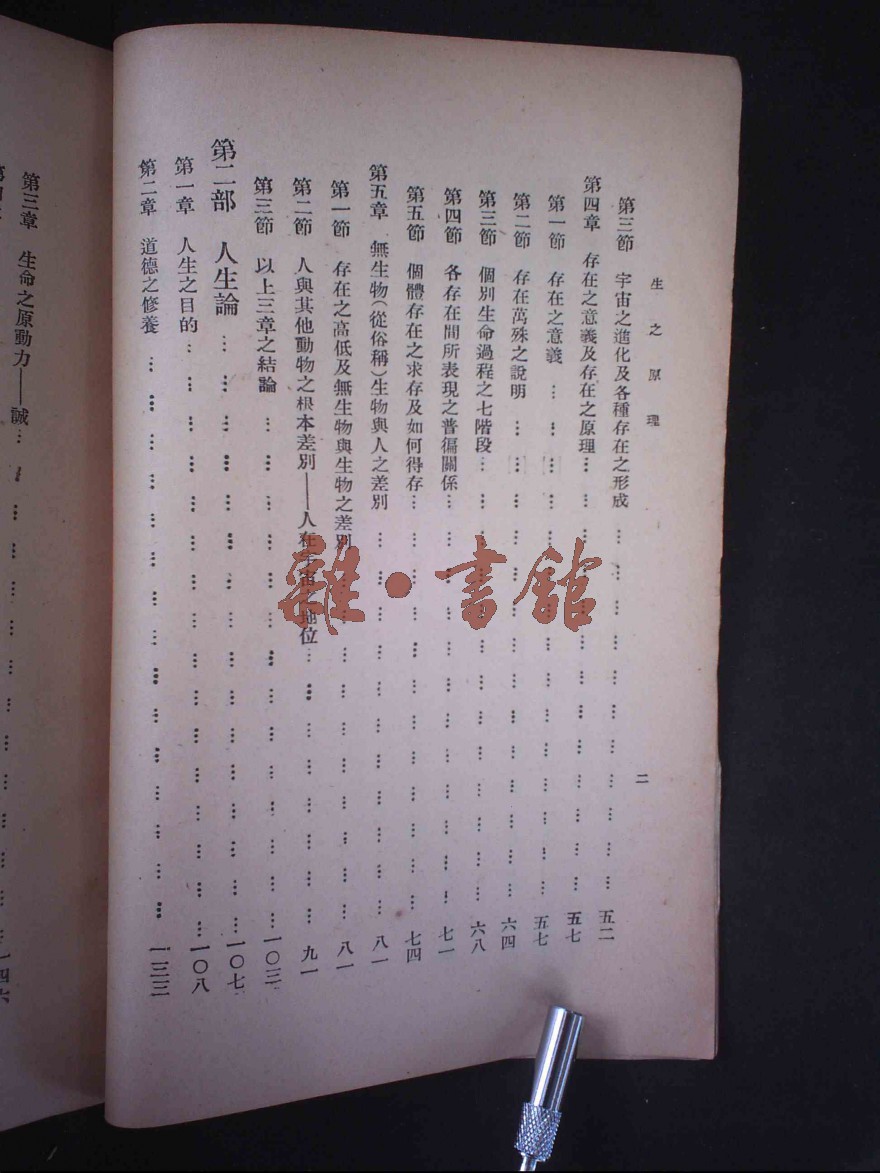 生之原理
二
第三節 宇宙之進化及各種存在之形成 … 五二
第四章 存在之意義及存在之原理 … 五七
第一節 存在之意義 … 五七
第二節 存在萬殊之說明 … 六四
第三節 個別生命過程之七階段 … 六八
第四節 各存在間所表現之普徧關係 … 七一
第五節 個體存在之求存及如何得存 … 七四
第五章 無生物(從俗稱)生物與人之差別 … 八一
第一節 存在之高低及無生物與生物之差別 … 八一
第二節 人與其他動物之根本差別——人在宇宙之地位 … 九一
第三節 以上三章之結論 … 一〇三
第二部 人生論 … 一〇七
第一章 人生之目的 … 一〇八
第二章 道德之修養 … 一三三
第三章 生命之原動力——誠 … 一四六
雜·書館